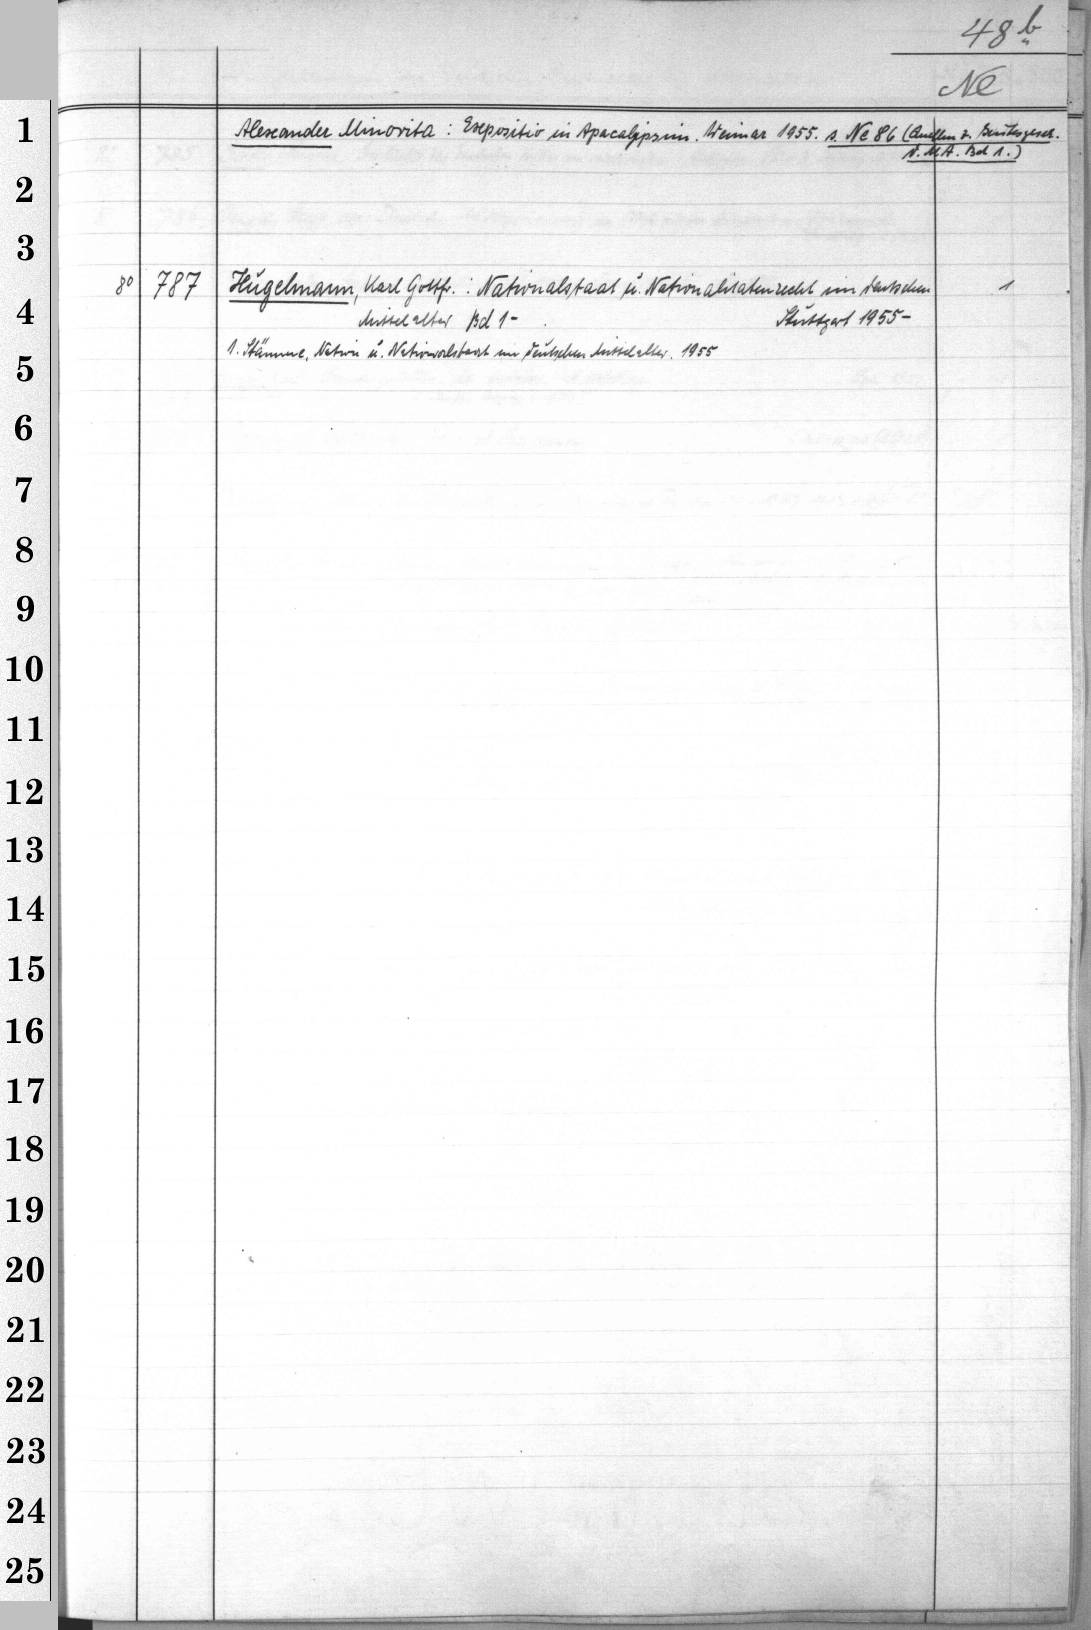 48b
Ne
1
Alexander Minorita : Expositio in Apocalypsim. Weimar 1955. s. Ne 86 (Quellen z. Geistesgesch.
d. M.A. Bd 1.)
2
3
8° 787 Hugelmann, Karl Gottfr. : Nationalstaat u. Nationalitätenrecht im deutschen 1
4
Mittelalter Bd 1- Stuttgart 1955-
1. Stämme, Nation u. Nationalstaat im deutschen Mittelalter. 1955
5
6
7
8
9
10
11
12
13
14
15
16
17
18
19
20
21
22
23
24
25